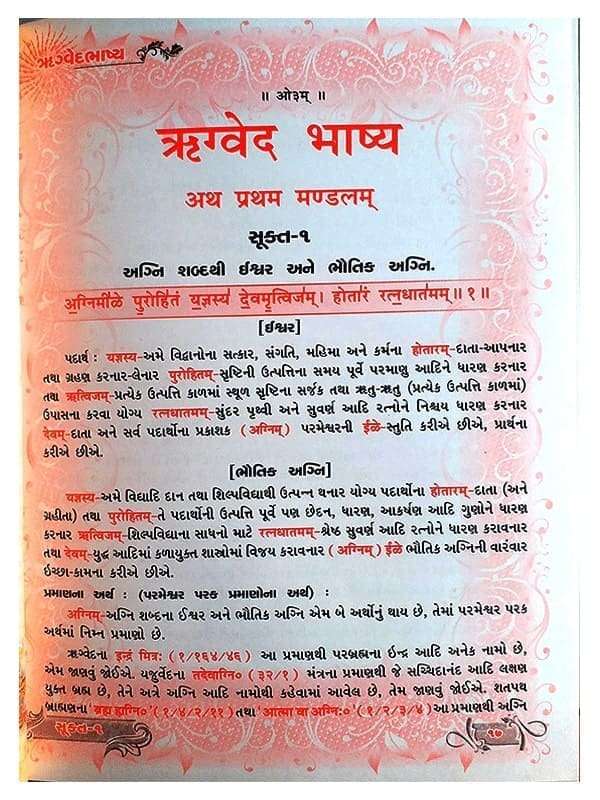 ઋગ્વેદભાષ્ય
॥ ओ३म् ॥
ऋग्वेद भाष्य
अथ प्रथम मण्डलम्
સૂક્ત-૧
અગ્નિ શબ્દથી ઈશ્વર અને ભૌતિક અગ્નિ.
अ॒ग्निमी॑ळे पु॒रोहि॑तं य॒ज्ञस्य॑ दे॒वमृ॒त्विज॑म्। होता॑रं रत्न॒धात॑मम्॥ १॥
[ઈશ્વર]
પદાર્થ : यज्ञस्य-અમે વિદ્વાનોના સત્કાર, સંગતિ, મહિમા અને કર્મના होतारम्-દાતા-આપનાર
તથા ગ્રહણ કરનાર-લેનાર पुरोहितम्-સૃષ્ટિની ઉત્પત્તિના સમય પૂર્વે પરમાણુ આદિને ધારણ કરનાર
તથા ऋत्विजम्-પ્રત્યેક ઉત્પત્તિ કાળમાં સ્થૂળ સૃષ્ટિના સર્જક તથા ઋતુ-ઋતુ (પ્રત્યેક ઉત્પત્તિ કાળમાં)
ઉપાસના કરવા યોગ્ય रत्नधातमम्-સુંદર પૃથ્વી અને સુવર્ણ આદિ રત્નોને નિશ્ચય ધારણ કરનાર
देवम्-દાતા અને સર્વ પદાર્થોના પ્રકાશક (अग्निम्) પરમેશ્વરની ईळे-સ્તુતિ કરીએ છીએ, પ્રાર્થના
કરીએ છીએ.
[ભૌતિક અગ્નિ]
यज्ञस्य-અમે વિદ્યાદિ દાન તથા શિલ્પવિદ્યાથી ઉત્પન્ન થનાર યોગ્ય પદાર્થોના होतारम्-દાતા (અને
ગ્રહીતા) તથા पुरोहितम्-તે પદાર્થોની ઉત્પત્તિ પૂર્વે પણ છેદન, ધારણ, આકર્ષણ આદિ ગુણોને ધારણ
કરનાર ऋत्विजम्-શિલ્પવિદ્યાના સાધનો માટે रत्नधातमम्-શ્રેષ્ઠ સુવર્ણ આદિ રત્નોને ધારણ કરાવનાર
તથા देवम्-યુદ્ધ આદિમાં કળાયુક્ત શાસ્ત્રોમાં વિજય કરાવનાર (अग्निम्) ईळे ભૌતિક અગ્નિની વારંવાર
ઇચ્છા-કામના કરીએ છીએ.
પ્રમાણના અર્થ : (પરમેશ્વર પરક પ્રમાણોના અર્થ) :
अग्निम्-અગ્નિ શબ્દના ઈશ્વર અને ભૌતિક અગ્નિ એમ બે અર્થોનું થાય છે, તેમાં પરમેશ્વર પરક
અર્થમાં નિમ્ન પ્રમાણો છે.
ઋગ્વેદના इन्द्रं मित्र: (૧/૧૬૪/૪૬) આ પ્રમાણથી પરબ્રહ્મના ઇન્દ્ર આદિ અનેક નામો છે,
એમ જાણવું જોઈએ. યજુર્વેદના तदेवाग्नि૦ (૩૨/૧) મંત્રના પ્રમાણથી જે સચ્ચિદાનંદ આદિ લક્ષણ
યુક્ત બ્રહ્મ છે, તેને અત્રે અગ્નિ આદિ નામોથી કહેવામાં આવેલ છે, તેમ જાણવું જોઈએ. શતપથ
બ્રાહ્મણના 'ब्रह्म ह्यग्नि૦' (૧/૪/૨/૧૧) તથા 'आत्मा वा अग्निः૦' (૧/૨/૩/૪) આ પ્રમાણથી અગ્નિ
સૂક્ત-૧
૧૭